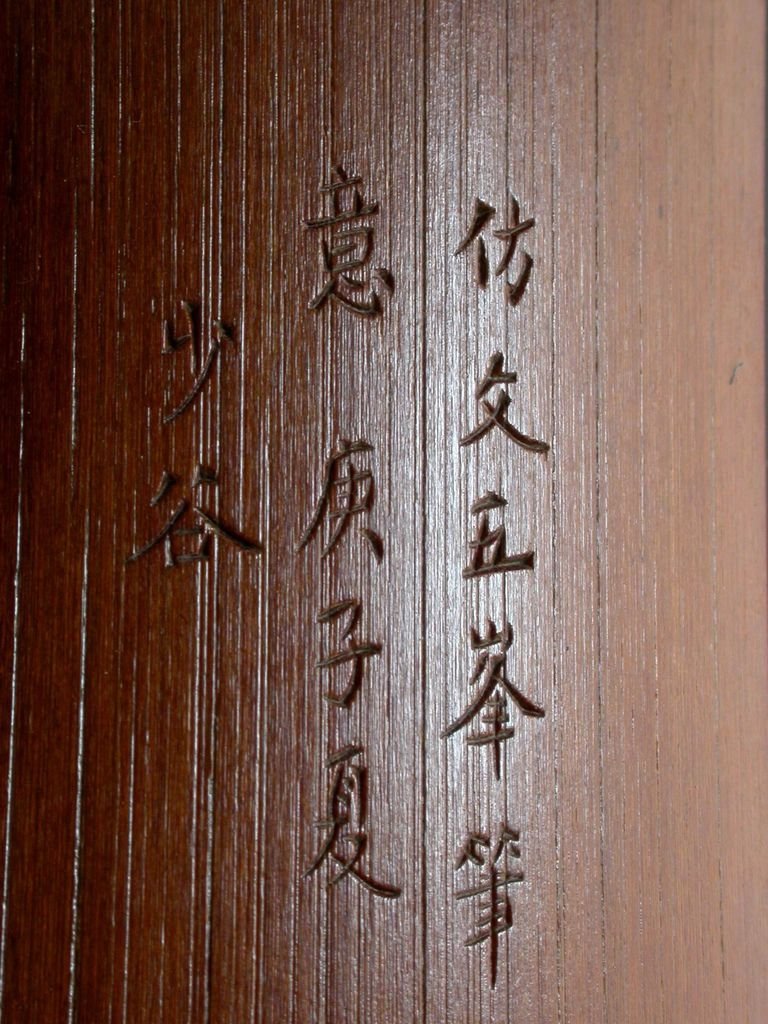 仿文五峯筆
意庚子夏
少谷